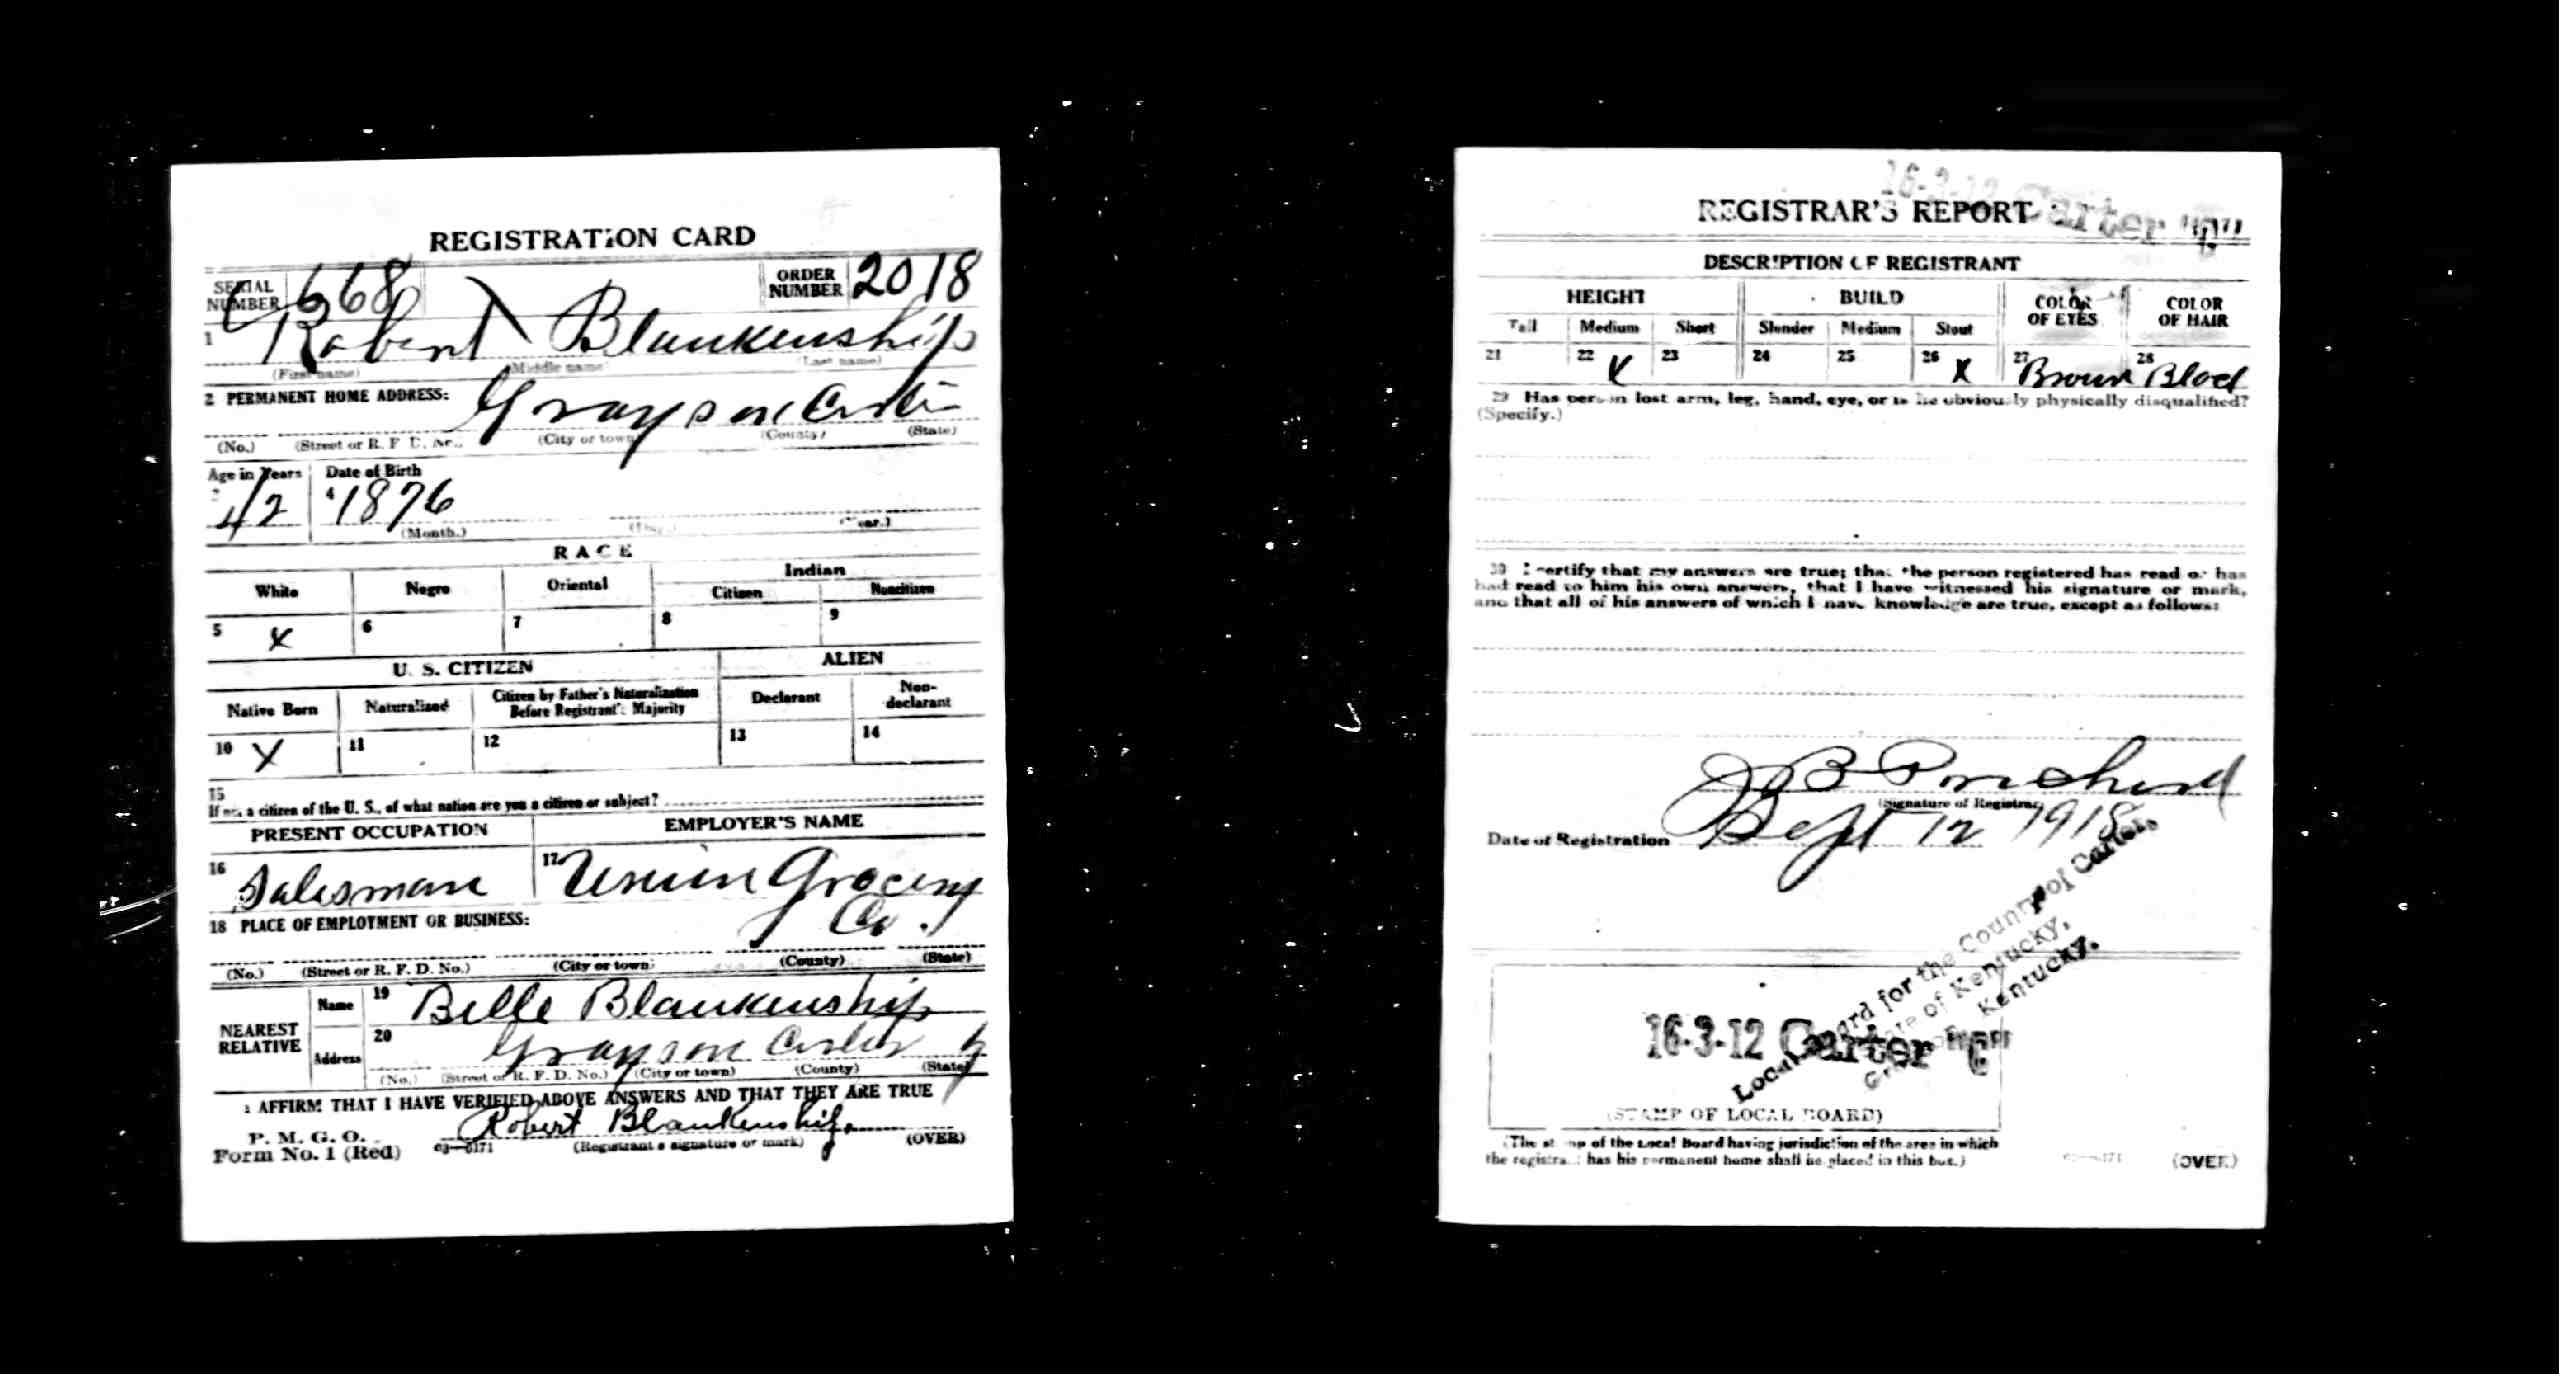 REGISTRATION CARD
SERIAL NUMBER 668 ORDER NUMBER 2018
1 Robert Blankenship
(First name) (Middle name) (Last name)
2 PERMANENT HOME ADDRESS: Grayson Carter
(No.) (Street or R. F. D. No.) (City or town) (County) (State)
Age in Years Date of Birth
3 42 4 1876
(Month.) (Day.) (Year.)
RACE
White Negro Oriental Indian
Citizen Noncitizen
5 X 6 7 8 9
U. S. CITIZEN ALIEN
Native Born Naturalized Citizen by Father's Naturalization Before Registrant's Majority Declarant Non-declarant
10 X 11 12 13 14
15
If not a citizen of the U. S., of what nation are you a citizen or subject?
PRESENT OCCUPATION EMPLOYER'S NAME
16 Salesman 17 Union Grocery
Co.
18 PLACE OF EMPLOYMENT OR BUSINESS:
(No.) (Street or R. F. D. No.) (City or town) (County) (State)
NEAREST RELATIVE Name 19 Belle Blankenship
Address 20 Grayson Carter Ky
(No.) (Street or R. F. D. No.) (City or town) (County) (State)
I AFFIRM THAT I HAVE VERIFIED ABOVE ANSWERS AND THAT THEY ARE TRUE
Robert Blankenship
P. M. G. O.
Form No. 1 (Red) 03—6171 (Registrant's signature or mark) (OVER)
16-3-12 Carter "C"
REGISTRAR'S REPORT
DESCRIPTION OF REGISTRANT
HEIGHT BUILD COLOR OF EYES COLOR OF HAIR
Tall Medium Short Slender Medium Stout
21 22 X 23 24 25 26 X 27 Brown 28 Black
29 Has person lost arm, leg, hand, eye, or is he obviously physically disqualified?
(Specify.)
30 I certify that my answers are true; that the person registered has read or has
had read to him his own answers, that I have witnessed his signature or mark,
and that all of his answers of which I have knowledge are true, except as follows:
(Signature of Registrar)
Date of Registration Sept 12 1918
Local Board for the County of Carter,
State of Kentucky,
Kentucky.
16-3-12 Carter "C"
(STAMP OF LOCAL BOARD)
(The stamp of the Local Board having jurisdiction of the area in which
the registrant has his permanent home shall be placed in this box.)
(OVER)